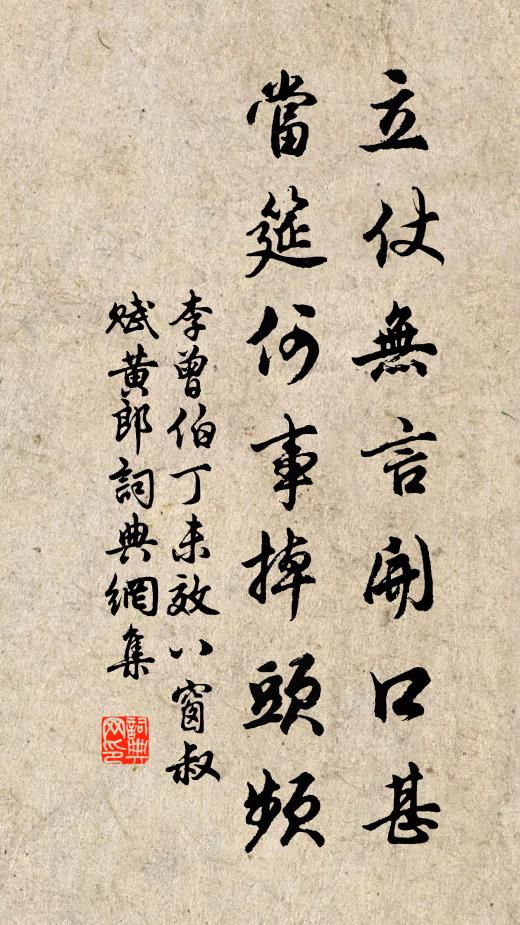 立仗無言開口甚
當筵何事掉頭頻
李曾伯丁未效八窗叔
賦黃郎詞典網集
詞典网印